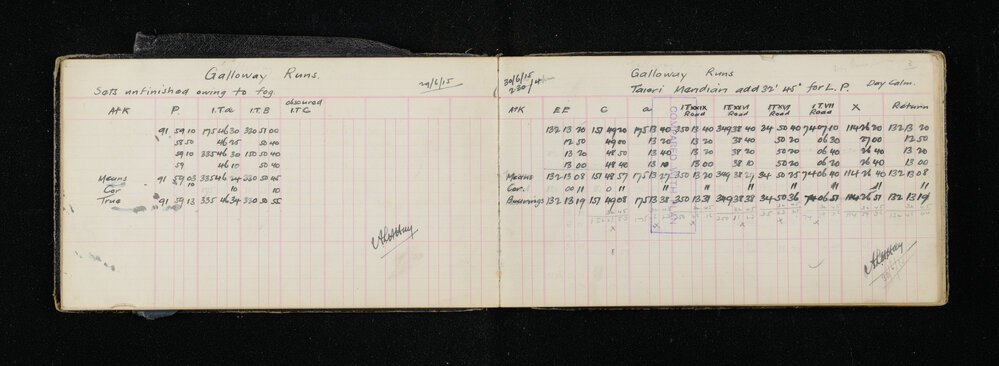 Galloway Runs.
29/6/15
Sets unfinished owing to fog.
obscured
At K P. I.T.a I.T.B I.T.C
91 59 10 175 46 30 330 51 00
58 50 46 25 50 40
59 10 335 46 30 150 50 40
59 46 10 50 40
Means 91 59 03 335 46 24 330 50 45
Cor 10 10 10
True 91 59 13 335 46 34 330 50 55
30/6/15
2.30
Galloway Runs
Taieri Meridian add 32' 45" for L.P. Day Calm.
At K EE C a IT XXIX Road IT XXVI Road IT XVI Road IT.VII Road X Return
132 13 20 151 49 20 175 13 40 350 13 40 349 38 40 34 50 40 74 07 10 114 26 20 132 13 20
12 50 49 00 13 20 13 20 38 40 50 20 06 30 27 00 12 50
13 20 48 50 13 40 13 20 38 20 50 20 06 40 26 40 13 20
13 00 48 40 13 10 13 00 38 10 50 20 06 40 26 40 13 00
Means 132 13 08 151 48 57 175 13 27 350 13 20 349 38 27 34 50 25 74 06 40 114 26 40 132 13 08
Cor. 00 11 0 11 11 11 11 11 11 11 11
Bearings 132 13 19 151 49 08 175 13 38 350 13 31 349 38 38 34 50 36 74 06 51 114 26 51 132 13 19
COMPARED WITH PLAN
30/6/15